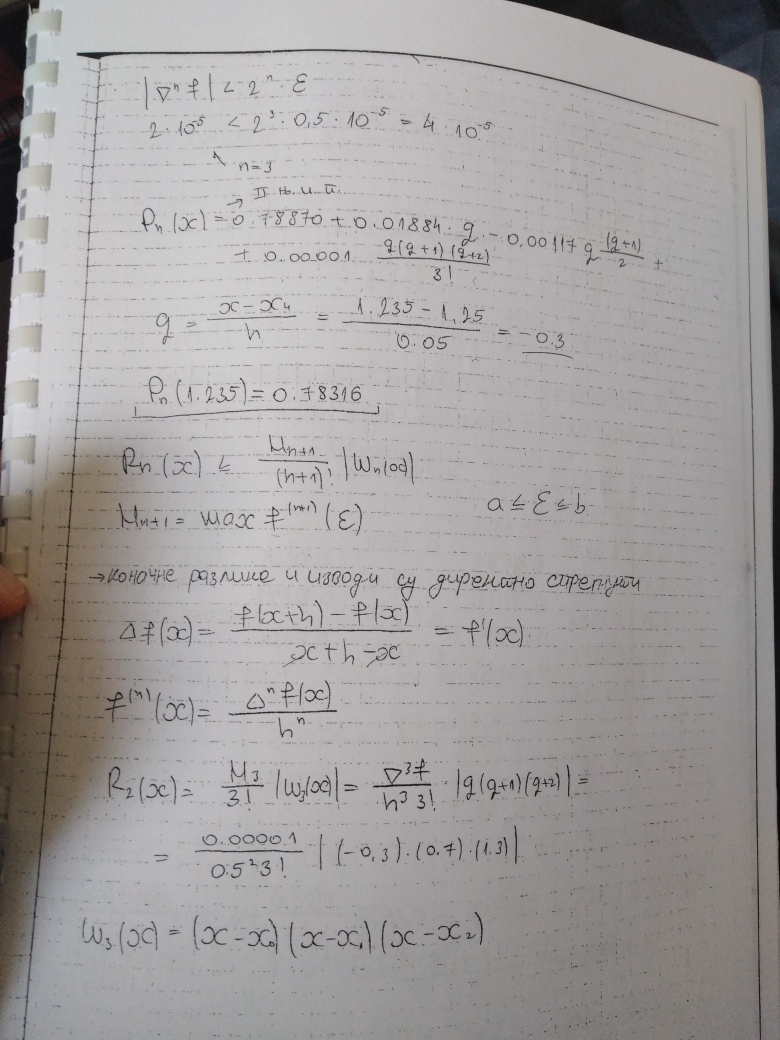 |∇ⁿ f| < 2ⁿ · ε
2 · 10⁻⁵ < 2³ · 0,5 · 10⁻⁵ = 4 · 10⁻⁵
n=3
→ II Њ. И. П.
Pₙ(x) = 0.78870 + 0.01884 · q - 0.00117 q (q+1)/2 +
+ 0.00001 q(q+1)(q+2)/3!
q = (x-x₄)/h = (1.235-1,25)/0.05 = -0.3
Pₙ(1.235) = 0.78316
Rₙ(x) ≤ Mₙ₊₁/(n+1)! |Wₙ(x)|
Mₙ₊₁ = max f⁽ⁿ⁺¹⁾(ε) a ≤ ε ≤ b
→ коначне разлике и изводи су
Δf(x) = (f(x+h) - f(x))/(x+h-x) = f'(x)
f⁽ⁿ⁾(x) = Δⁿf(x)/hⁿ
R₂(x) = M₃/3! |W₃(x)| = ∇³f/(h³ 3!) · |q(q+1)(q+2)| =
= 0.00001/(0.5² 3!) |(-0,3) · (0,7) · (1.3)|
W₃(x) = (x-x₀)(x-x₁)(x-x₂)